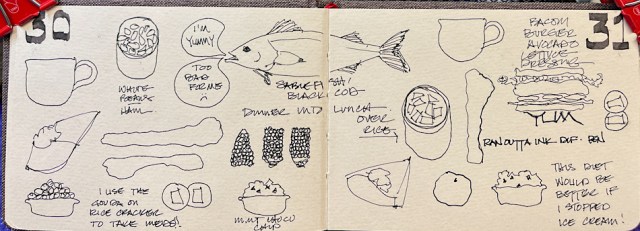 30
I'M
YUMMY
TOO
BAD
FOR ME
WHITE
BEANS
HAM
SABLEFISH!
BLACK COD
DINNER UNTO
LUNCH
OVER
RICE
I USE THE
GOUDA ON
RICE CRACKER
TO TAKE MEDS!
MINT CHOCO
CHIP
31
BACON
BURGER
AVOCADO
LETTUCE
DRESSING
YUM
RAN OUTTA INK DIF. PEN
THIS DIET
WOULD BE
BETTER IF
I STOPPED
ICE CREAM!